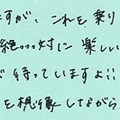 ますが、これを乗り
絶○○○対に楽しい
が待っていますよ!!
を想像しながら